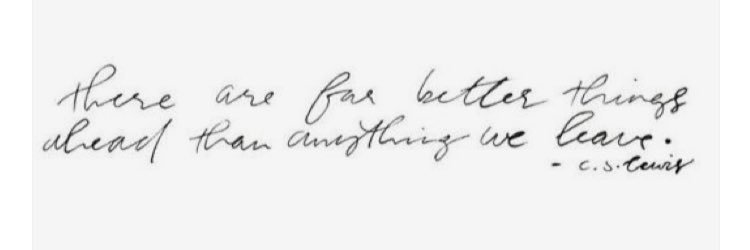 there are far better things
ahead than anything we leave.
- c.s. lewis